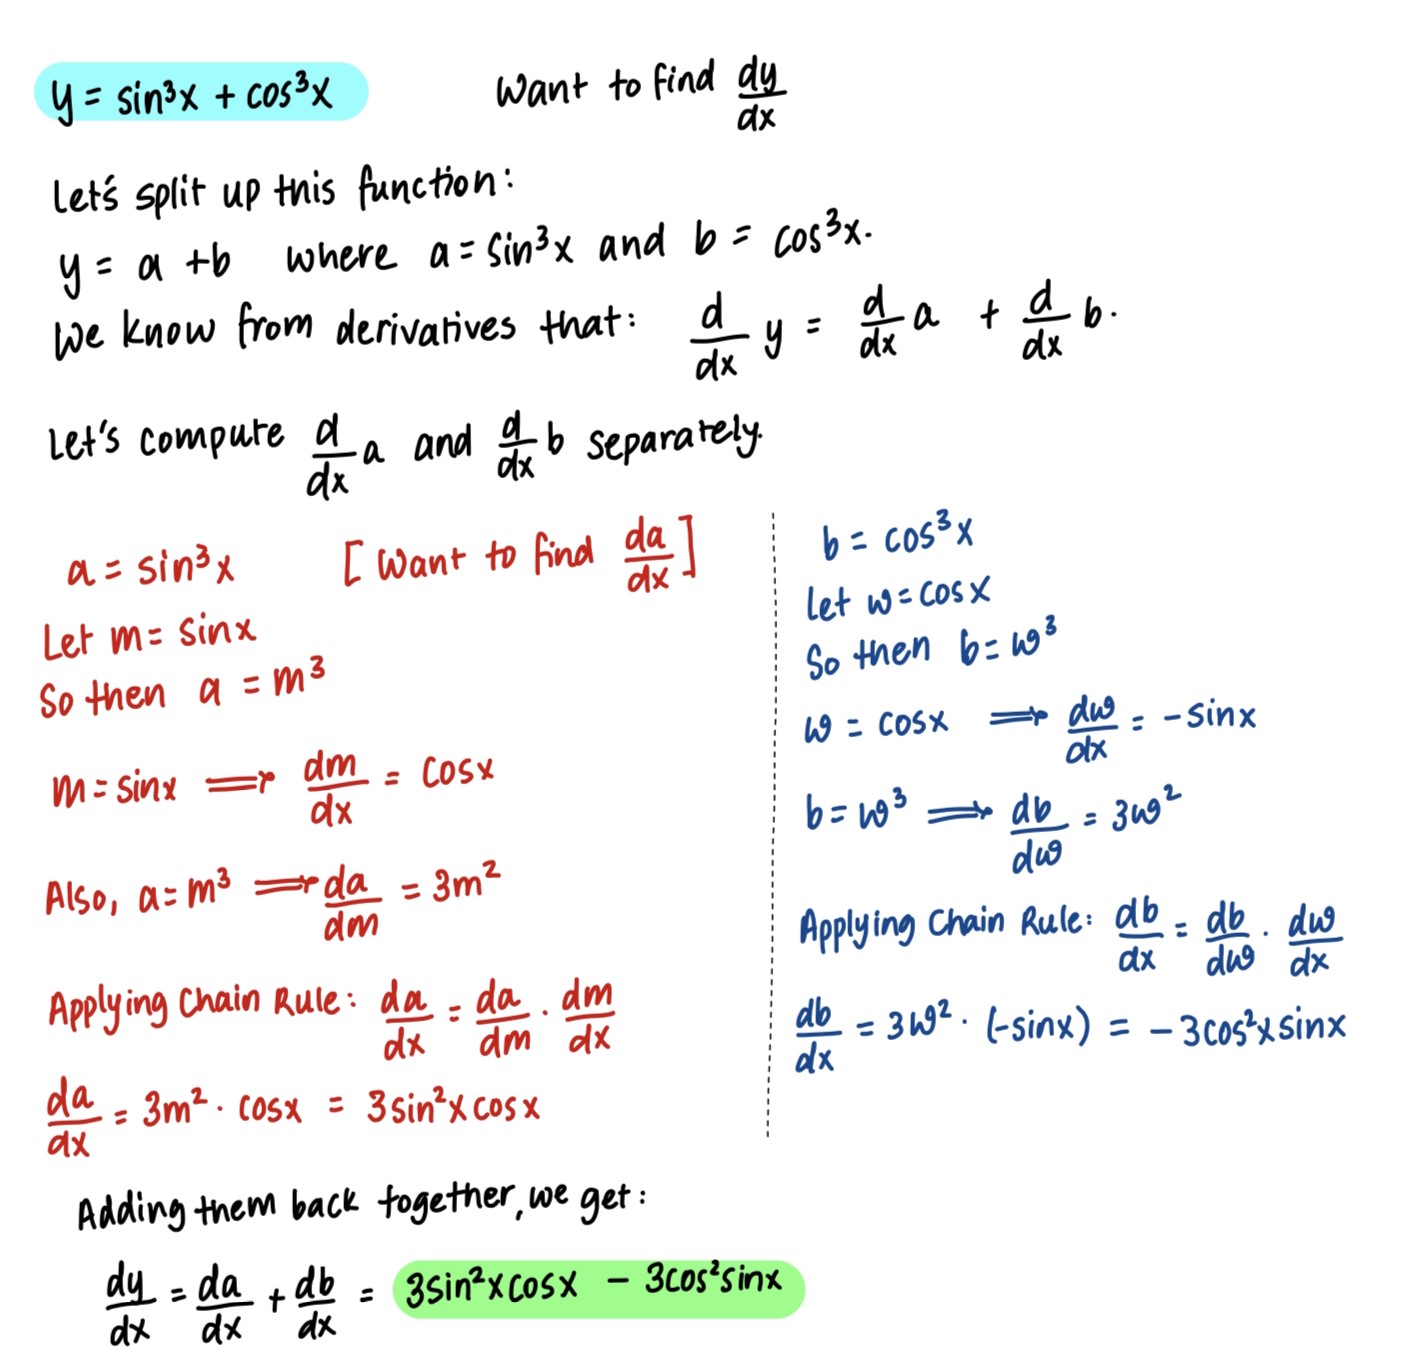 y = sin³x + cos³x   Want to find dy/dx
Let's split up this function:
y = a + b where a = sin³x and b = cos³x.
We know from derivatives that: d/dx y = d/dx a + d/dx b.
Let's compute d/dx a and d/dx b separately.
a = sin³x   [Want to find da/dx]
Let m = sinx
So then a = m³
m = sinx ⟹ dm/dx = cosx
Also, a = m³ ⟹ da/dm = 3m²
Applying Chain Rule: da/dx = da/dm · dm/dx
da/dx = 3m² · cosx = 3sin²x cosx
b = cos³x
Let w = cosx
So then b = w³
w = cosx ⟹ dw/dx = -sinx
b = w³ ⟹ db/dw = 3w²
Applying Chain Rule: db/dx = db/dw · dw/dx
db/dx = 3w² · (-sinx) = -3cos²x sinx
Adding them back together, we get:
dy/dx = da/dx + db/dx = 3sin²x cosx - 3cos²sinx